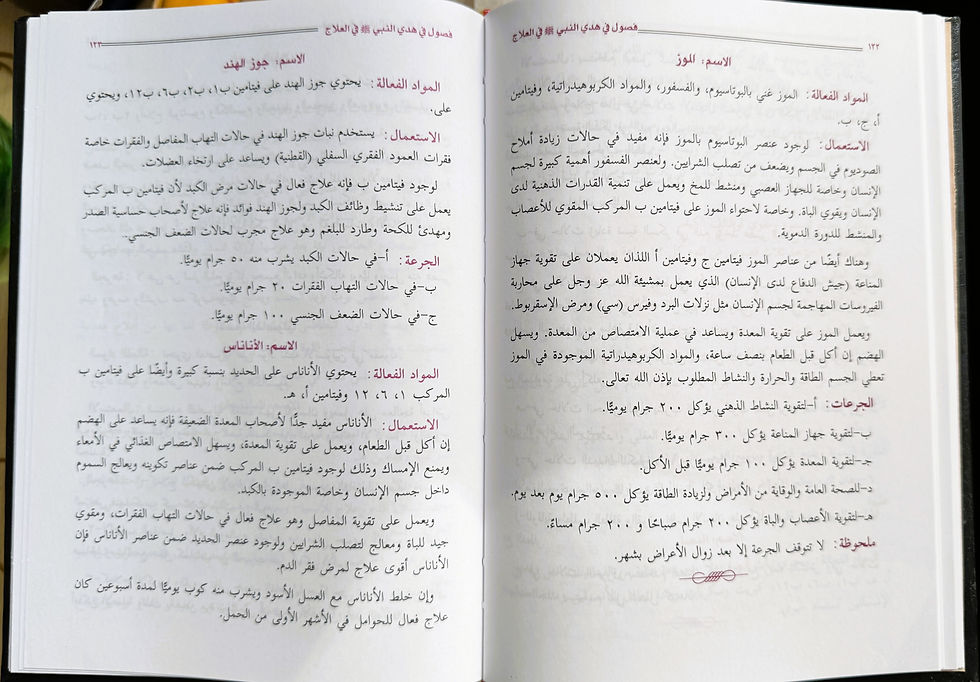 ١٢٢ فصول في هدي النبي ﷺ في العلاج
الاسم: الموز
المواد الفعالة: الموز غني بالبوتاسيوم، والفسفور، والمواد الكربوهيدراتية، وفيتامين
أ، ج، ب.
الاستعمال: لوجود عنصر البوتاسيوم بالموز فإنه مفيد في حالات زيادة أملاح
الصوديوم في الجسم ويضعف من تصلب الشرايين. ولعنصر الفسفور أهمية كبيرة لجسم
الإنسان وخاصة للجهاز العصبي ومنشط للمخ ويعمل على تنمية القدرات الذهنية لدى
الإنسان ويقوي الباة. وخاصة لاحتواء الموز على فيتامين ب المركب المقوي للأعصاب
والمنشط للدورة الدموية.
وهناك أيضًا من عناصر الموز فيتامين ج وفيتامين أ اللذان يعملان على تقوية جهاز
المناعة (جيش الدفاع لدى الإنسان) الذي يعمل بمشيئة الله عز وجل على محاربة
الفيروسات المهاجمة لجسم الإنسان مثل نزلات البرد وفيرس (سي) ومرض الإسقربوط.
ويعمل الموز على تقوية المعدة ويساعد في عملية الامتصاص من المعدة. ويسهل
الهضم إن أكل قبل الطعام بنصف ساعة، والمواد الكربوهيدراتية الموجودة في الموز
تعطي الجسم الطاقة والحرارة والنشاط المطلوب بإذن الله تعالى.
الجرعات: أ-لتقوية النشاط الذهني يؤكل ٢٠٠ جرام يوميًّا.
ب-لتقوية جهاز المناعة يؤكل ٣٠٠ جرام يوميًّا.
جـ-لتقوية المعدة يؤكل ١٠٠ جرام يوميًّا قبل الأكل.
د-للصحة العامة والوقاية من الأمراض ولزيادة الطاقة يؤكل ٥٠٠ جرام يوم بعد يوم.
هـ-لتقوية الأعصاب والباة يؤكل ٢٠٠ جرام صباحًا و ٢٠٠ جرام مساءً.
ملحوظة: لا تتوقف الجرعة إلا بعد زوال الأعراض بشهر.
فصول في هدي النبي ﷺ في العلاج ١٢٣
الاسم: جوز الهند
المواد الفعالة: يحتوي جوز الهند على فيتامين ب١، ب٢، ب٦، ب١٢، ويحتوي
على.
الاستعمال: يستخدم نبات جوز الهند في حالات التهاب المفاصل والفقرات خاصة
فقرات العمود الفقري السفلي (القطنية) ويساعد على ارتخاء العضلات.
لوجود فيتامين ب فإنه علاج فعال في حالات مرض الكبد لأن فيتامين ب المركب
يعمل على تنشيط وظائف الكبد ولجوز الهند فوائد فإنه علاج لأصحاب حساسية الصدر
ومهدئ للكحة وطارد للبلغم وهو علاج مجرب لحالات الضعف الجنسي..
الجرعة: أ-في حالات الكبد يشرب منه ٥٠ جرام يوميًّا.
ب-في حالات التهاب الفقرات ٢٠ جرام يوميًّا.
ج-في حالات الضعف الجنسي ١٠٠ جرام يوميًّا.
الاسم: الأناناس
المواد الفعالة: يحتوي الأناناس على الحديد بنسبة كبيرة وأيضًا على فيتامين ب
المركب ١، ٦، ١٢ وفيتامين أ، هـ.
الاستعمال: الأناناس مفيد جدًّا لأصحاب المعدة الضعيفة فإنه يساعد على الهضم
إن أكل قبل الطعام، ويعمل على تقوية المعدة، ويسهل الامتصاص الغذائي في الأمعاء
ويمنع الإمساك وذلك لوجود فيتامين ب المركب ضمن عناصر تكوينه ويعالج السموم
داخل جسم الإنسان وخاصة الموجودة بالكبد.
ويعمل على تقوية المفاصل وهو علاج فعال في حالات التهاب الفقرات، ومقوي
جيد للباة ومعالج لتصلب الشرايين ولوجود عنصر الحديد ضمن عناصر الأناناس فإن
الأناناس أقوى علاج لمرض فقر الدم.
وإن خلط الأناناس مع العسل الأسود ويشرب منه كوب يوميًّا لمدة أسبوعين كان
علاج فعال للحوامل في الأشهر الأولى من الحمل.